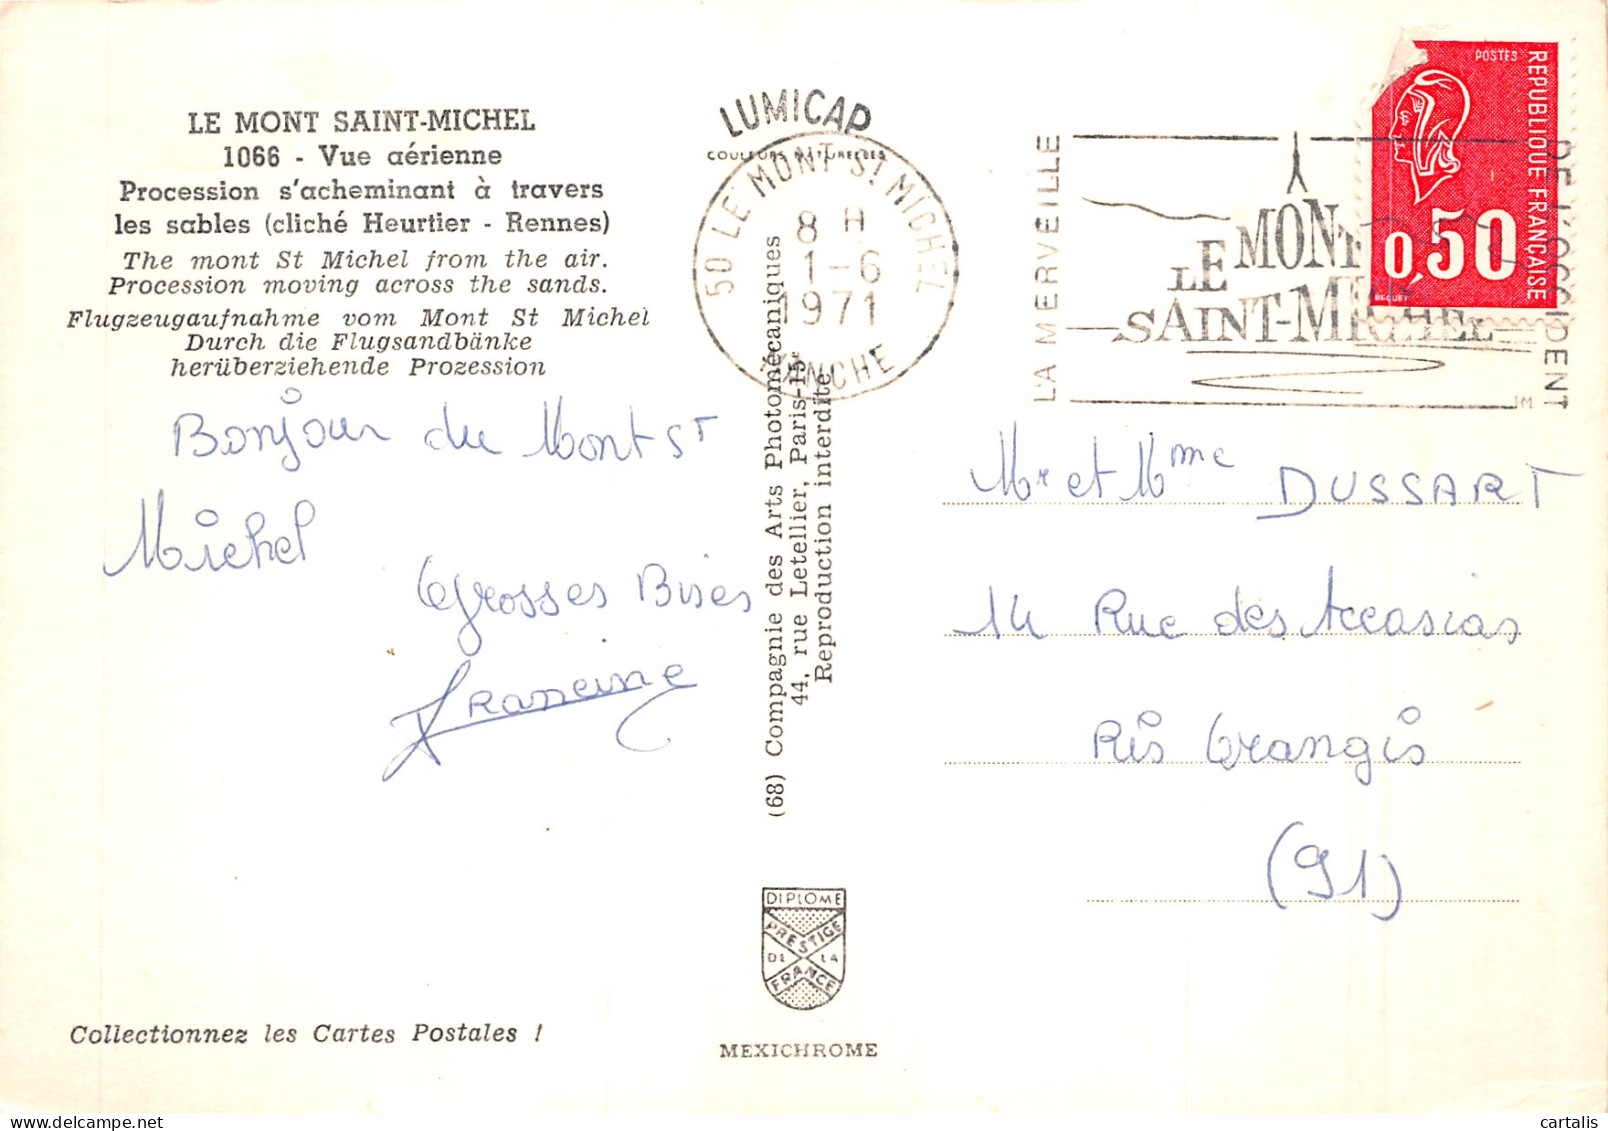 LE MONT SAINT-MICHEL
1066 - Vue aérienne
Procession s'acheminant à travers
les sables (cliché Heurtier - Rennes)
The mont St Michel from the air.
Procession moving across the sands.
Flugzeugaufnahme vom Mont St Michel
Durch die Flugsandbänke
herüberziehende Prozession
Bonjour du Mont St
Michel
Grosses Bises
Francine
Collectionnez les Cartes Postales !
LUMICAP
COULEURS NATURELLES
50 LE MONT-St MICHEL
8 H
1-6
1971
MANCHE
(68) Compagnie des Arts Photomécaniques
44, rue Letellier, Paris-15e
Reproduction interdite
DIPLOME
PRESTIGE
DE LA
FRANCE
MEXICHROME
LA MERVEILLE
LE MONT
SAINT-MICHEL
JM
DE L'OCCIDENT
POSTES
REPUBLIQUE FRANÇAISE
0,50
BEQUET
Mr et Mme DUSSART
14 Rue des Accasias
Ris Orangis
(91)
delcampe.net
cartalis